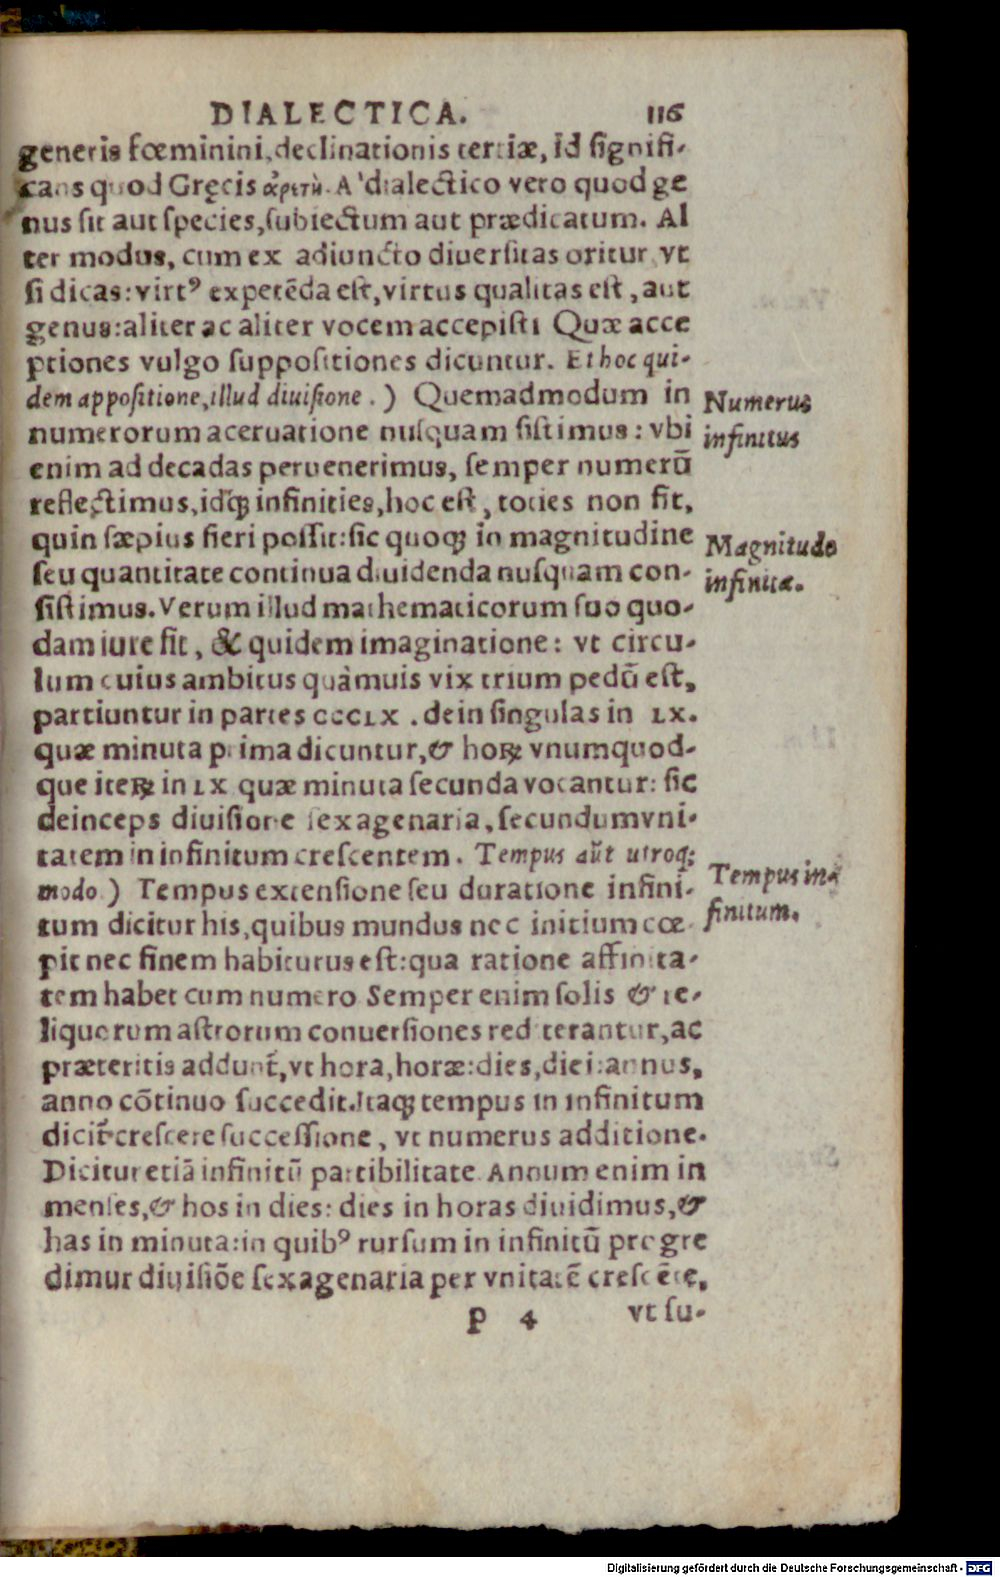 DIALECTICA. 116
generis fœminini, declinationis tertiæ, id signifi-
cans quod Gręcis ἀρετὴ. A dialectico vero quod ge
nus sit aut species, subiectum aut prædicatum. Al
ter modus, cum ex adiuncto diuersitas oritur, vt
si dicas: virtꝰ expetēda est, virtus qualitas est, aut
genus: aliter ac aliter vocem accepisti Quæ acce
ptiones vulgo suppositiones dicuntur. Et hoc qui-
dem appositione, illud diuisione. ) Quemadmodum in
Numerus
numerorum aceruatione nusquam sistimus: vbi
infinitus
enim ad decadas peruenerimus, semper numerū
reflectimus, idq̃ꝫ infinities, hoc est, toties non fit,
quin sæpius fieri possit: sic quoqꝫ in magnitudine
Magnitudo
seu quantitate continua diuidenda nusquam con-
infinita.
sistimus. Verum illud mathematicorum suo quo-
dam iure fit, & quidem imaginatione: vt circu-
lum cuius ambitus quàmuis vix trium pedū est,
partiuntur in partes CCCLX. dein singulas in LX.
quæ minuta prima dicuntur, & hoꝝ vnumquod-
que iteꝝ in LX quæ minuta secunda vocantur: sic
deinceps diuisione sexagenaria, secundum vni-
tatem in infinitum crescentem. Tempus aūt utroqꝫ
Tempus in-
modo.) Tempus extensione seu duratione infini-
finitum.
tum dicitur his, quibus mundus nec initium cœ-
pit nec finem habiturus est: qua ratione affinita-
tem habet cum numero Semper enim solis & re-
liquorum astrorum conuersiones rediterantur, ac
præteritis addunt̃, vt hora, horæ: dies, diei: annus,
anno cōtinuo succedit. Itaqꝫ tempus in infinitum
dicit̃ crescere successione, vt numerus additione.
Dicitur etiā infinitū partibilitate Annum enim in
menses, & hos in dies: dies in horas diuidimus, &
has in minuta: in quibꝰ rursum in infinitū progre
dimur diuisiōe sexagenaria per vnitatē crescēte,
P 4 vt su-
Digitalisierung gefördert durch die Deutsche Forschungsgemeinschaft - DFG